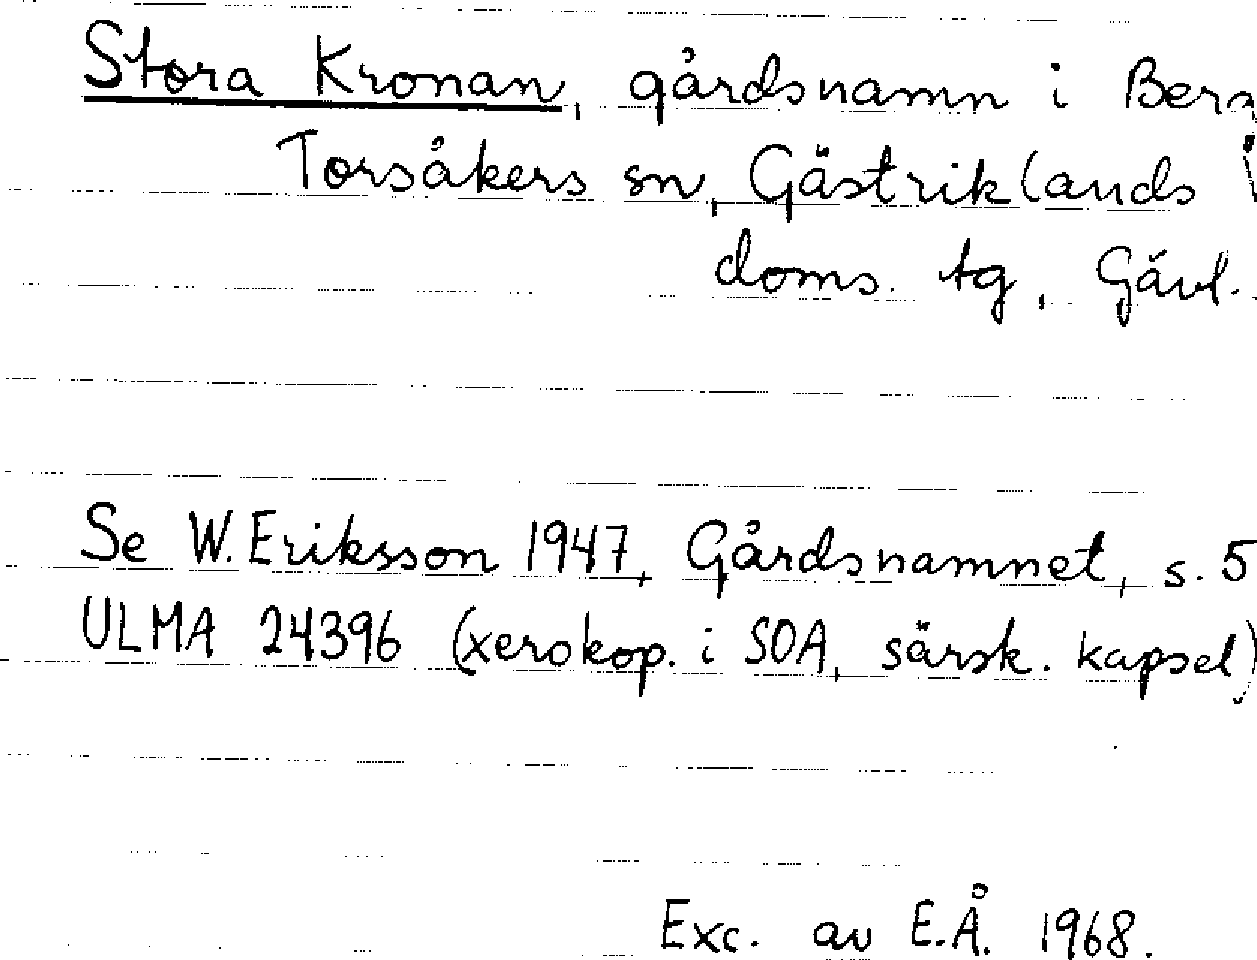 Stora Kronan, gårdsnamn i
Torsåkers sn, Gästriklands
doms. tg, Gävl.
Se W. Eriksson 1947, Gårdsnamnet, s. 5
ULMA 24396 (xerokop. i SOA, särsk. kapsel)
Exc. av E.Å. 1968.